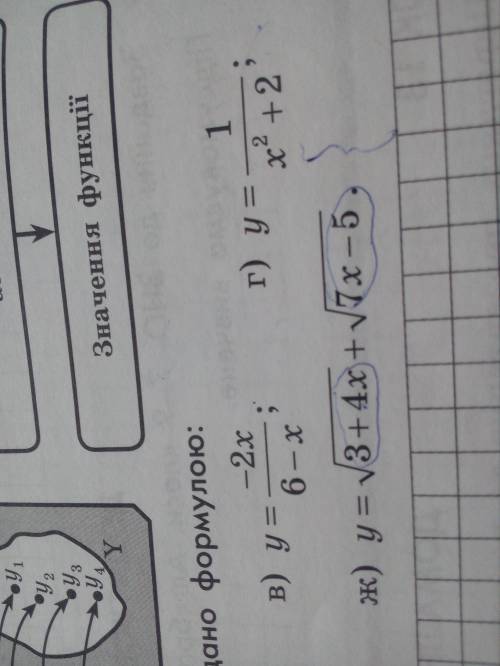 Значення функції
y₁
y₂
y₃
y₄
Y
дано формулою:
в) y = -2x / (6 − x);
г) y = 1 / (x² + 2);
ж) y = √(3 + 4x) + √(7x − 5).